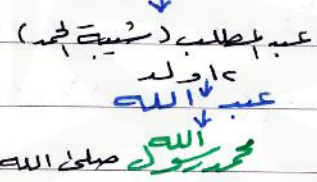 عبد المطلب (شيبة الحمد)
١٢ ولد
عبد الله
محمد رسول الله صلى الله